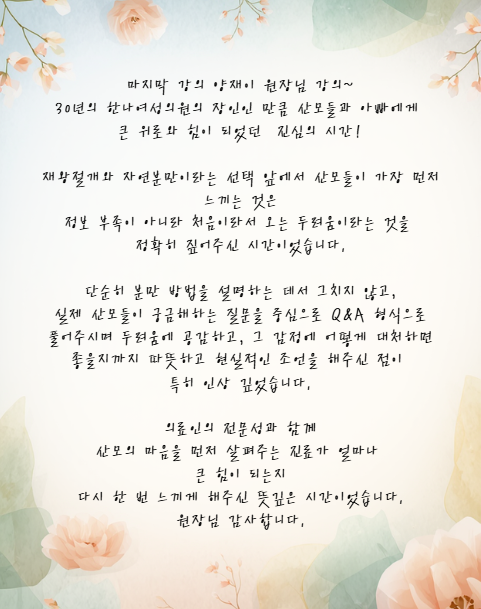 마지막 강의 양재이 원장님 강의~
30년의 한나여성의원의 장인인 만큼 산모들과 아빠에게
큰 위로와 힘이 되었던 진심의 시간!
재왕절개와 자연분만이라는 선택 앞에서 산모들이 가장 먼저
느끼는 것은
정보 부족이 아니라 처음이라서 오는 두려움이라는 것을
정확히 짚어주신 시간이었습니다.
단순히 분만 방법을 설명하는 데서 그치지 않고,
실제 산모들이 궁금해하는 질문을 중심으로 Q&A 형식으로
풀어주시며 두려움에 공감하고, 그 감정에 어떻게 대처하면
좋을지까지 따뜻하고 현실적인 조언을 해주신 점이
특히 인상 깊었습니다.
의료인의 전문성과 함께
산모의 마음을 먼저 살펴주는 진료가 얼마나
큰 힘이 되는지
다시 한 번 느끼게 해주신 뜻깊은 시간이었습니다.
원장님 감사합니다.